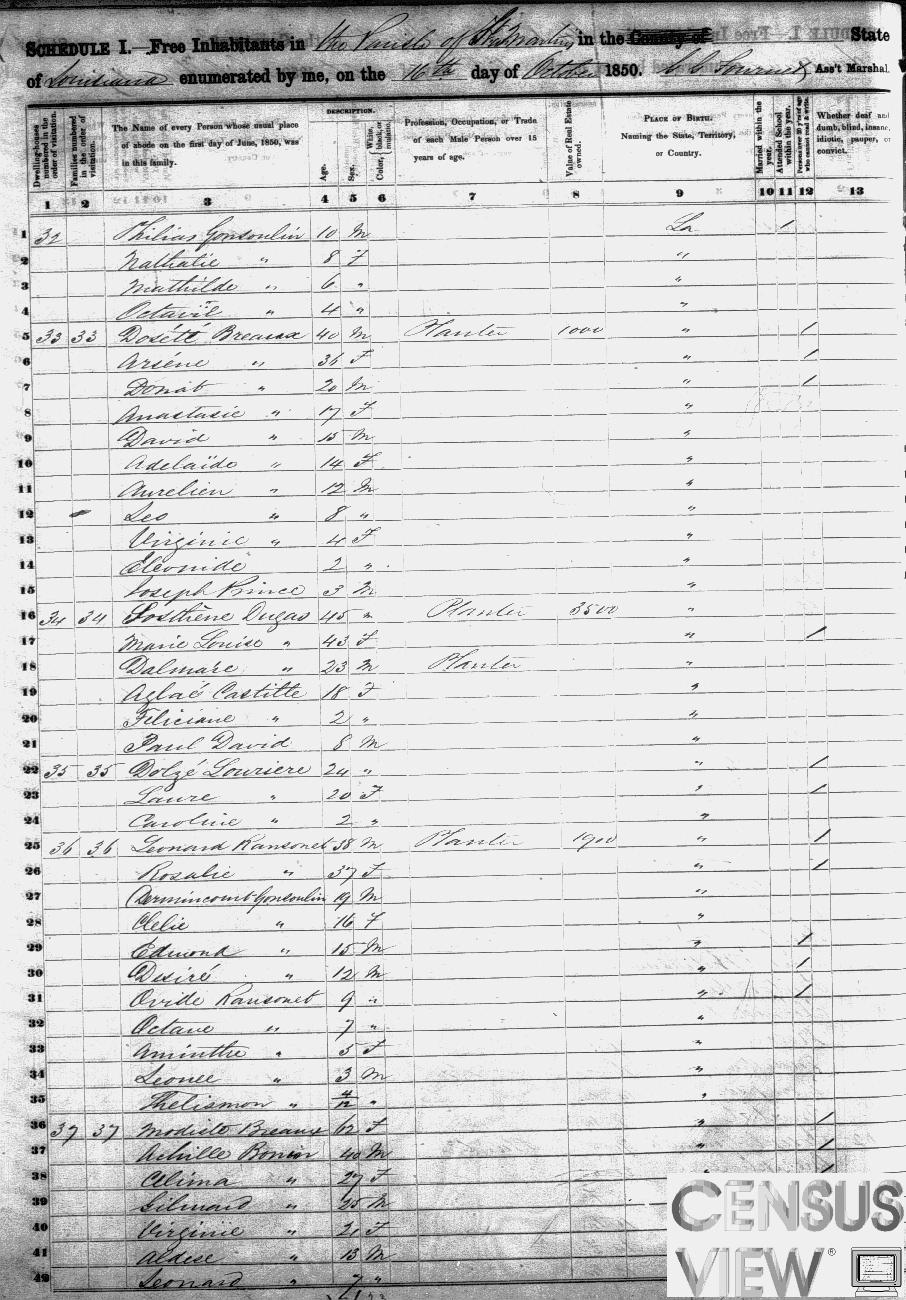 SCHEDULE I.—Free Inhabitants in the Parish of St Martin in the County of State
of Louisiana enumerated by me, on the 16th day of October 1850. Ass't Marshal.
Dwelling-houses numbered in the order of visitation.
Families numbered in the order of visitation.
The Name of every Person whose usual place of abode on the first day of June, 1850, was in this family.
DESCRIPTION.
Age.
Sex.
Color, White, black, or mulatto.
Profession, Occupation, or Trade of each Male Person over 15 years of age.
Value of Real Estate owned.
PLACE OF BIRTH. Naming the State, Territory, or Country.
Married within the year.
Attended School within the year.
Persons over 20 y'rs of age who cannot read & write.
Whether deaf and dumb, blind, insane, idiotic, pauper, or convict.
1 2 3 4 5 6 7 8 9 10 11 12 13
1 32 Philias Gonsoulin 10 M La /
2 Nathalie " 8 F "
3 Mathilde " 6 " "
4 Octavie " 4 " "
5 33 33 Dosété Breaux 40 M Planter 1000 " /
6 Arséne " 36 F " /
7 Donat " 20 M " /
8 Anastasie " 17 F "
9 David " 15 M "
10 Adelaïde " 14 F "
11 Aurelien " 12 M "
12 Leo " 8 " "
13 Virginie " 4 F "
14 Eléonide " 2 " "
15 Joseph Prince 3 M "
16 34 34 Losthène Dugas 45 " Planter 3500 "
17 Marie Louise " 43 F " /
18 Dalmare " 23 M Planter "
19 Aglaé Castille 18 F "
20 Feliciane " 2 " "
21 Paul David 8 M "
22 35 35 Dolzé Louriere 24 " " /
23 Laure " 20 F " /
24 Caroline " 2 " "
25 36 36 Leonard Ransonet 38 M Planter 1900 " /
26 Rosalie " 37 F " /
27 Dermincourt Gonsoulin 19 M "
28 Clelie " 16 F "
29 Edmond " 15 M " /
30 Desiré " 12 M " /
31 Ovide Ransonet 9 " " /
32 Octave " 7 " "
33 Aminthe " 5 F "
34 Leonce " 3 M "
35 Thelismon " 4/12 " "
36 37 37 Modiste Breaux 62 F " /
37 Achille Bonin 40 M " /
38 Celima " 27 F " /
39 " 25 M
40 Virginie " 21 F
41 Aldese " 13 M
42 Leonard " 7 "
CENSUS
VIEW®